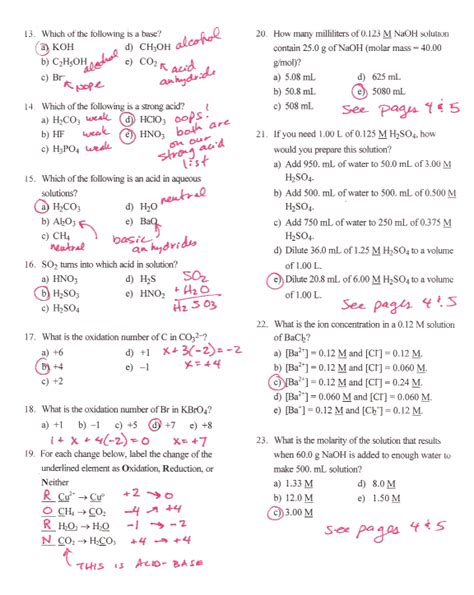 13. Which of the following is a base?
a) KOH d) CH₃OH alcohol
b) C₂H₅OH alcohol e) CO₂
c) Br⁻ nope acid anhydride
14. Which of the following is a strong acid?
a) H₂CO₃ weak d) HClO₃ oops!
b) HF weak e) HNO₃ both are
c) H₃PO₄ weak on our strong acid list
15. Which of the following is an acid in aqueous
solutions?
a) H₂CO₃ d) H₂O neutral
b) Al₂O₃ e) BaO
c) CH₄ neutral basic anhydrides
16. SO₂ turns into which acid in solution?
a) HNO₃ d) H₂S SO₂
b) H₂SO₃ e) HNO₂ + H₂O
c) H₂SO₄ H₂SO₃
17. What is the oxidation number of C in CO₃²⁻?
a) +6 d) +1 x + 3(-2) = -2
b) +4 e) –1 x = +4
c) +2
18. What is the oxidation number of Br in KBrO₄?
a) +1 b) –1 c) +5 d) +7 e) –8
1 + x + 4(-2) = 0 x = +7
19. For each change below, label the change of the
underlined element as Oxidation, Reduction, or
Neither
R Cu²⁺ → Cu⁰ +2 → 0
O CH₄ → CO₂ -4 → +4
R H₂O₂ → H₂O -1 → -2
N CO₂ → H₂CO₃ +4 → +4
THIS IS ACID-BASE
20. How many milliliters of 0.123 M NaOH solution
contain 25.0 g of NaOH (molar mass = 40.00
g/mol)?
a) 5.08 mL d) 625 mL
b) 50.8 mL e) 5080 mL
c) 508 mL see pages 4 & 5
21. If you need 1.00 L of 0.125 M H₂SO₄, how
would you prepare this solution?
a) Add 950. mL of water to 50.0 mL of 3.00 M
H₂SO₄.
b) Add 500. mL of water to 500. mL of 0.500 M
H₂SO₄.
c) Add 750 mL of water to 250 mL of 0.375 M
H₂SO₄.
d) Dilute 36.0 mL of 1.25 M H₂SO₄ to a volume
of 1.00 L.
e) Dilute 20.8 mL of 6.00 M H₂SO₄ to a volume
of 1.00 L.
see pages 4 & 5
22. What is the ion concentration in a 0.12 M solution
of BaCl₂?
a) [Ba²⁺] = 0.12 M and [Cl⁻] = 0.12 M.
b) [Ba²⁺] = 0.12 M and [Cl⁻] = 0.06 M.
c) [Ba²⁺] = 0.12 M and [Cl⁻] = 0.24 M.
d) [Ba²⁺] = 0.060 M and [Cl⁻] = 0.060 M.
e) [Ba⁺] = 0.12 M and [Cl₂⁻] = 0.12 M.
23. What is the molarity of the solution that results
when 60.0 g NaOH is added to enough water to
make 500. mL solution?
a) 1.33 M d) 8.0 M
b) 12.0 M e) 1.50 M
c) 3.00 M
see pages 4 & 5